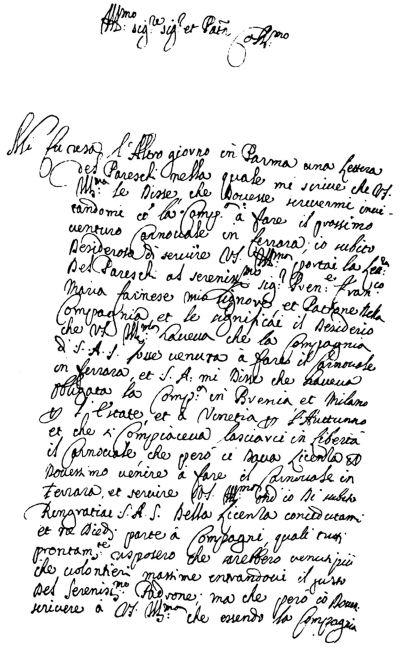 Ill:mo sig:re sig:r et Patn Col:mo
Mi fu resa l'Altro giorno in Parma una lettera
del Pareschi nella quale mi scriue che VS.
Ill:ma le Disse che Douesse scriuermi inui-
tandomi cō la Comp:a à fare il prossimo
venturo Carnouale in ferrara, io subito
Desideroso di seruire VS. Ill:ma portai la
Del Pareschi al sereniss:mo sig: Pren:e fran:co
Maria farnese mio signore et Padrone della
Compagnia, et le significai il Desiderio
che VS. Ill:ma haueua che la Compagnia
di S.A.S. fosse venuta à fare il Carnouale
in ferrara, et S.A. mi Disse che haueua
obligata la Comp:a in Brenia et Milano
l'Estate, et à Venetia l'Auttunno
et che si Compiaceua lasciarci in libertà
il Carnouale che però ci Daua licenza
Douessimo venire à fare il Carnouale in
ferrara, et seruire VS. Ill:ma ond'io Di subito
Rengratiai S.A.S. Della licenza concedutami
et ne Diedi parte à Compagni, quali tutti
prontam:te risposero che sarebbero venuti più
che volontieri massime entrandoui il gusto
Del Sereniss:mo Padrone: ma che però io Douessi
scriuere à VS. Ill:ma che essendo la Compagnia